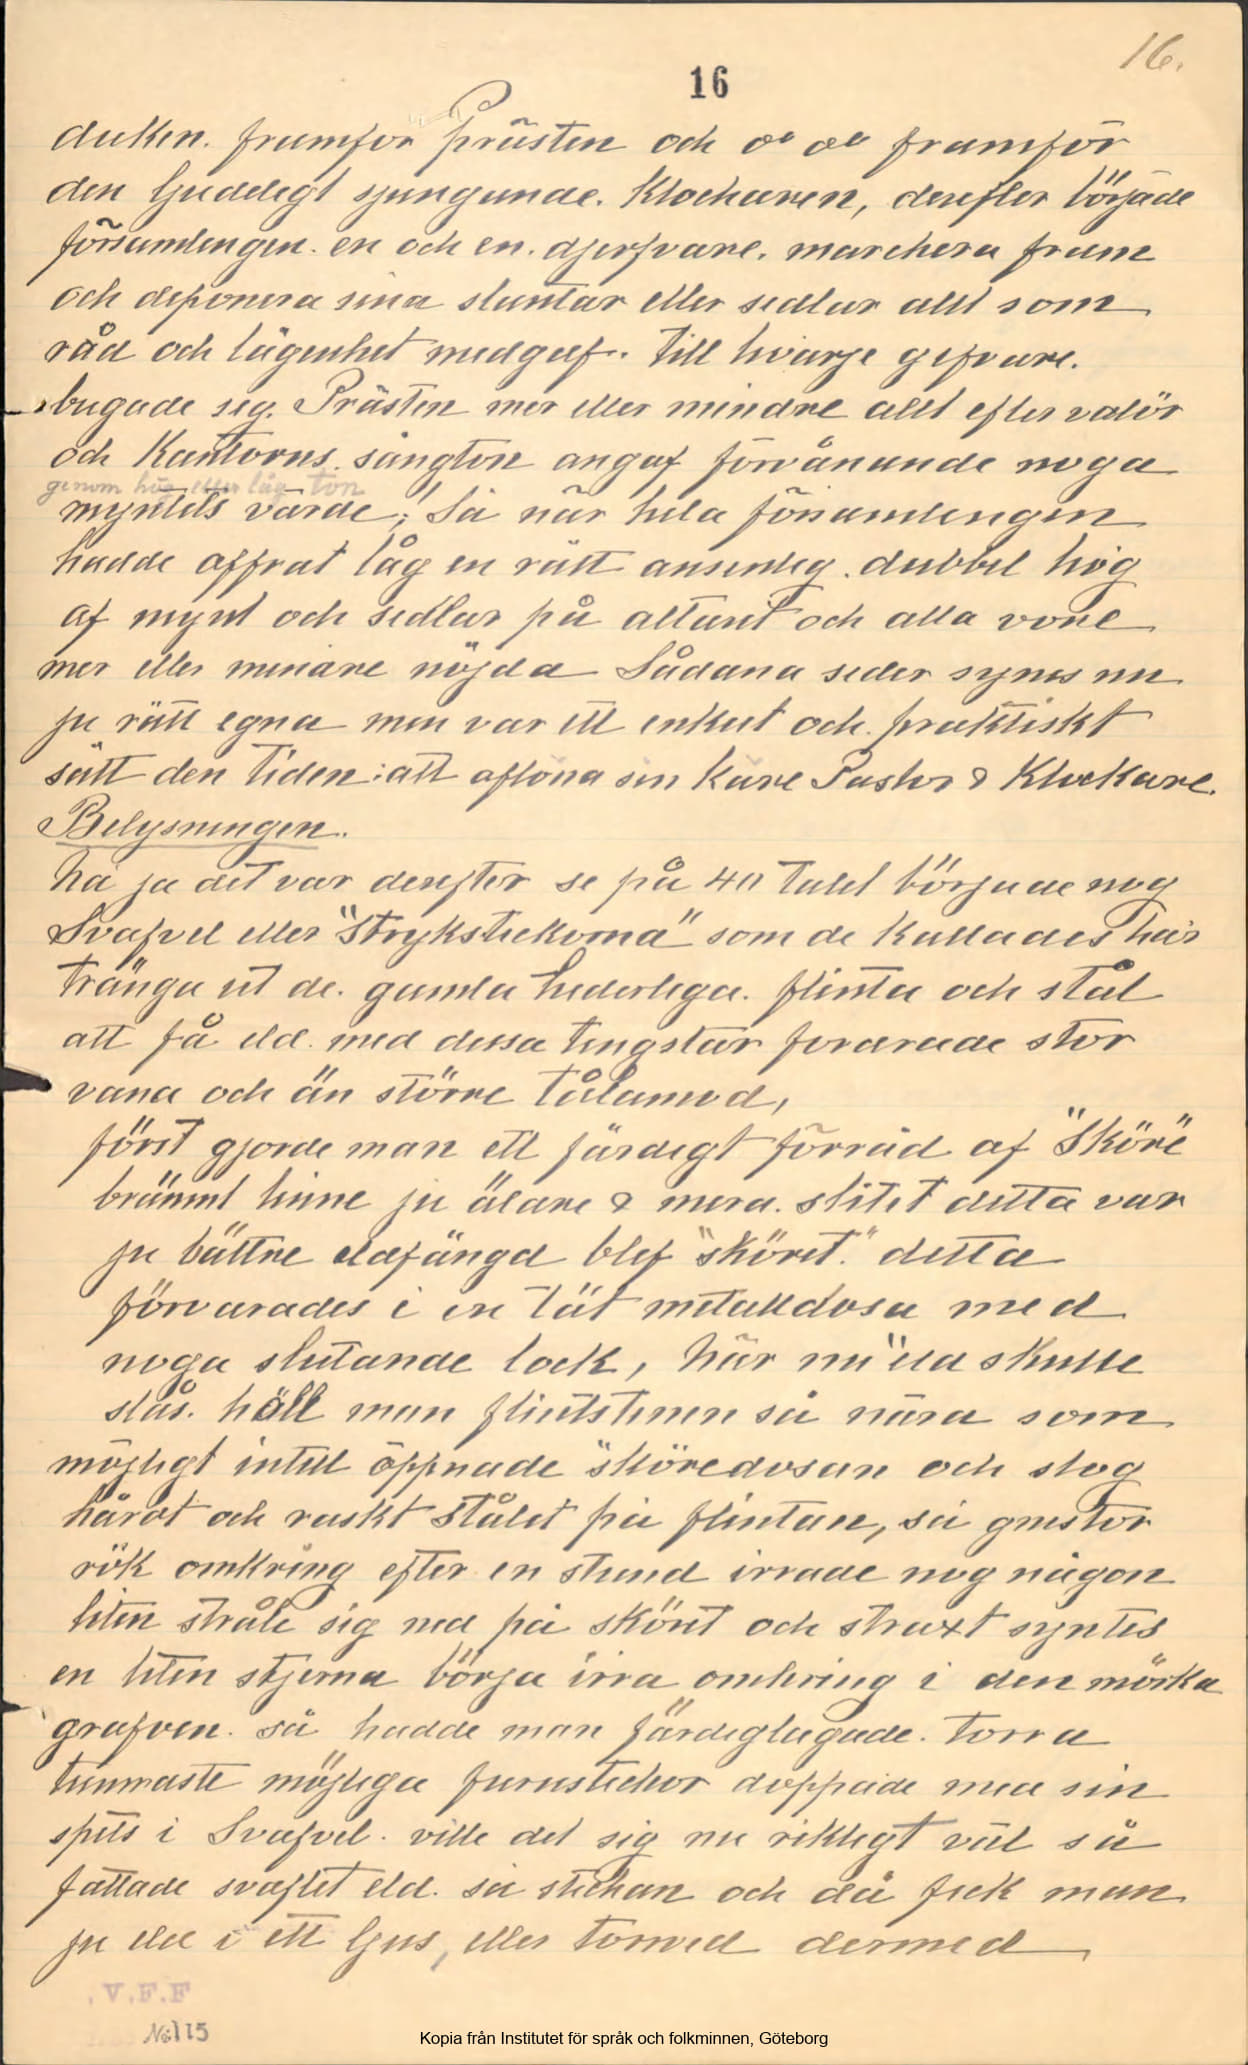 16.
16
duken. framför Prästen och do do framför
den ljudeligt sjungande. Klockaren, derefter började
församlingen. en och en. djerfvare. marchera fram
och deponera sina slantar eller sedlar allt som
råd och lägenhet medgaf. Till hvarje gifvare.
bugade sig. Prästen mer eller mindre allt efter valör
och Kantorns. sångton angaf förvånande noga
genom hög eller låg ton
myntets värde; Så när hela församlingen
hadde offrat låg en rätt ansenlig. dubbel hög
af mynt och sedlar på altaret och alla vore
mer eller mindre nöjda Sådana seder synes nu
ju rätt egna men var ett enkelt och praktiskt
sätt den tiden: att aflöna sin käre Pastor & Klockare.
Belysningen.
ha ja det var derefter se på 40 talet började nog
Svafvel eller "strykstickorna" som de kallades här
tränga ut de. gamla hederliga. flinta och stål
att få eld. med dessa tingstar fordrade stor
vana och än större tålamod,
först gjorde man ett färdigt förråd af "sköre"
brämnt linne ju äldre & mera. slitet detta var
ju bättre eldfängd blef "sköret." detta
förvarades i en tät metalldosa med
noga slutande lock, När nu eld skulle
slås. höll man flintstenen så nära som
möjligt intill öppnade "sköredosan och slog
hårdt och raskt stålet på flintan, så gnistor
rök omkring efter en stund irrade nog någon
liten stråle sig ned på sköret och straxt syntes
en liten stjerna börja irra omkring i den mörka
grafven. så hadde man färdiglagade. torra
tunnaste möjliga furustickor doppade med sin
spets i Svafvel. ville det sig nu riktigt väl så
fattade svaflet eld. så stickan och då fick man
ju eld i ett ljus, eller torved dermed
.V.F.F
No 115
Kopia från Institutet för språk och folkminnen, Göteborg